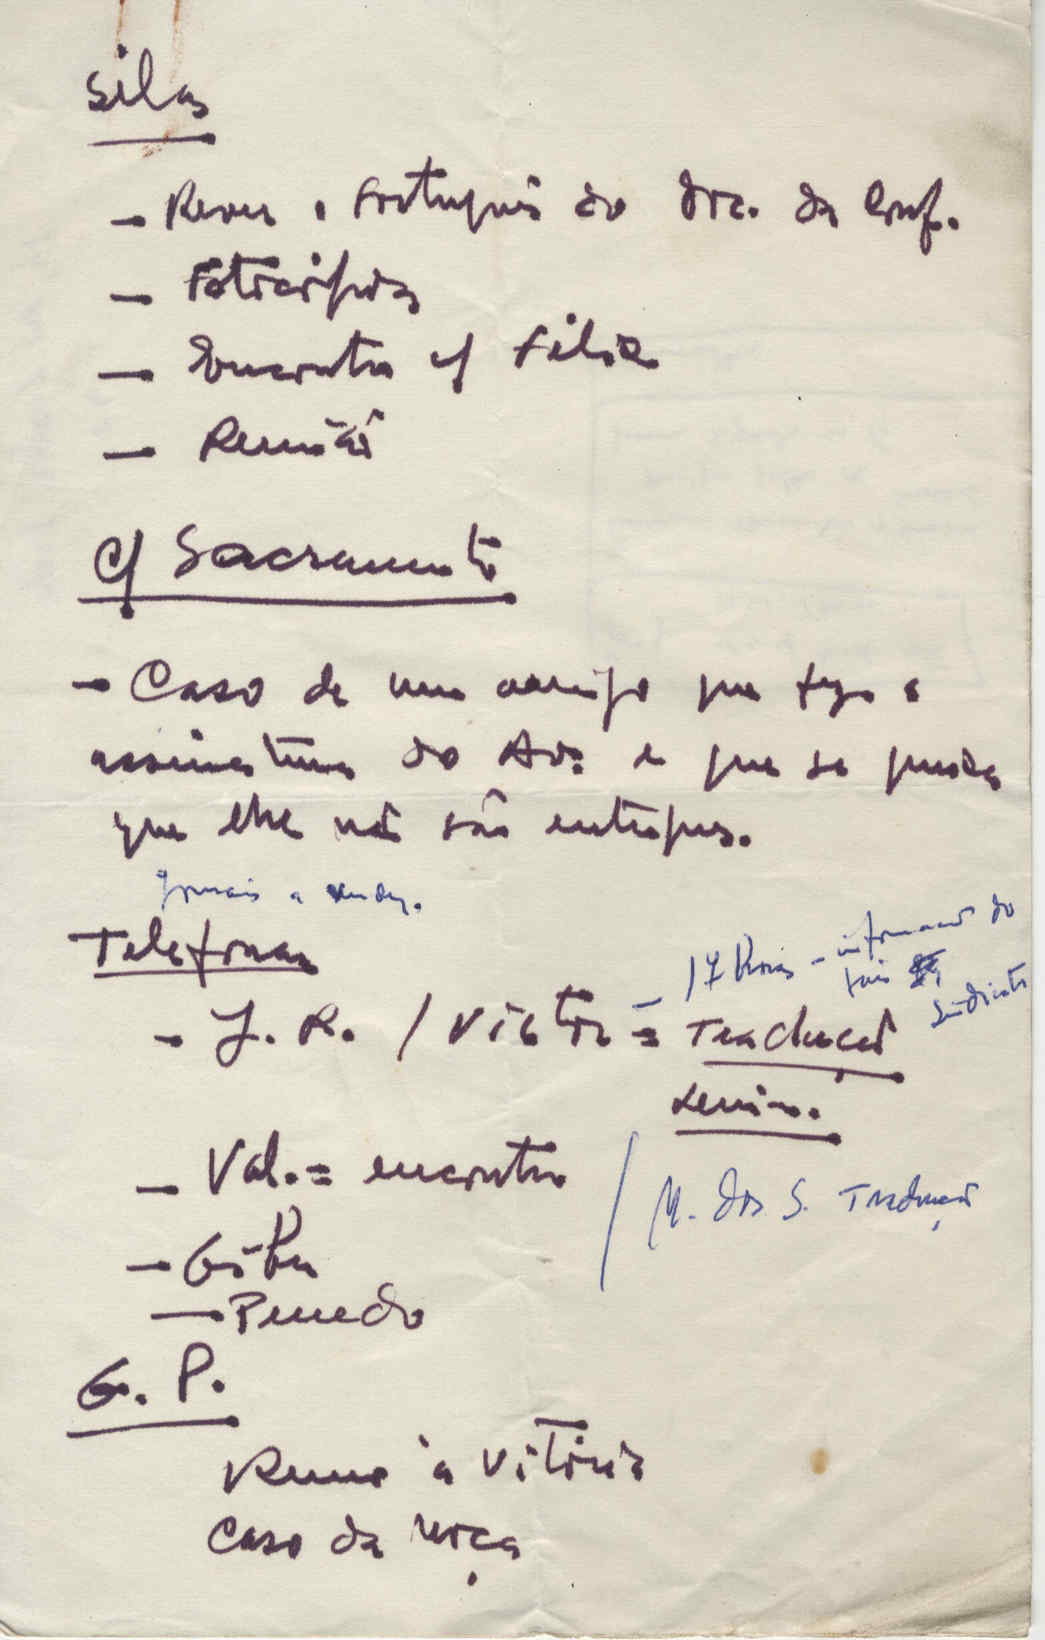 Silas
- Rever o Português do Doc. da Conf.
- Fotocópias
- Encontro c/ Félix
- Reunião
c/ Sacramento
- Caso de um amigo que fez a
assinatura do Av. e que se queixa
que ele não são entregues.
Jornais a vender.
Telefonar
- J. R. / Victor = Tradução
- 17 horas - informação do
Sindicato
Lenine.
- Val. = encontro
/ M. dos S. Tradução
-
- Penedo
G. P.
Rumo à Vitória
Caso da moça